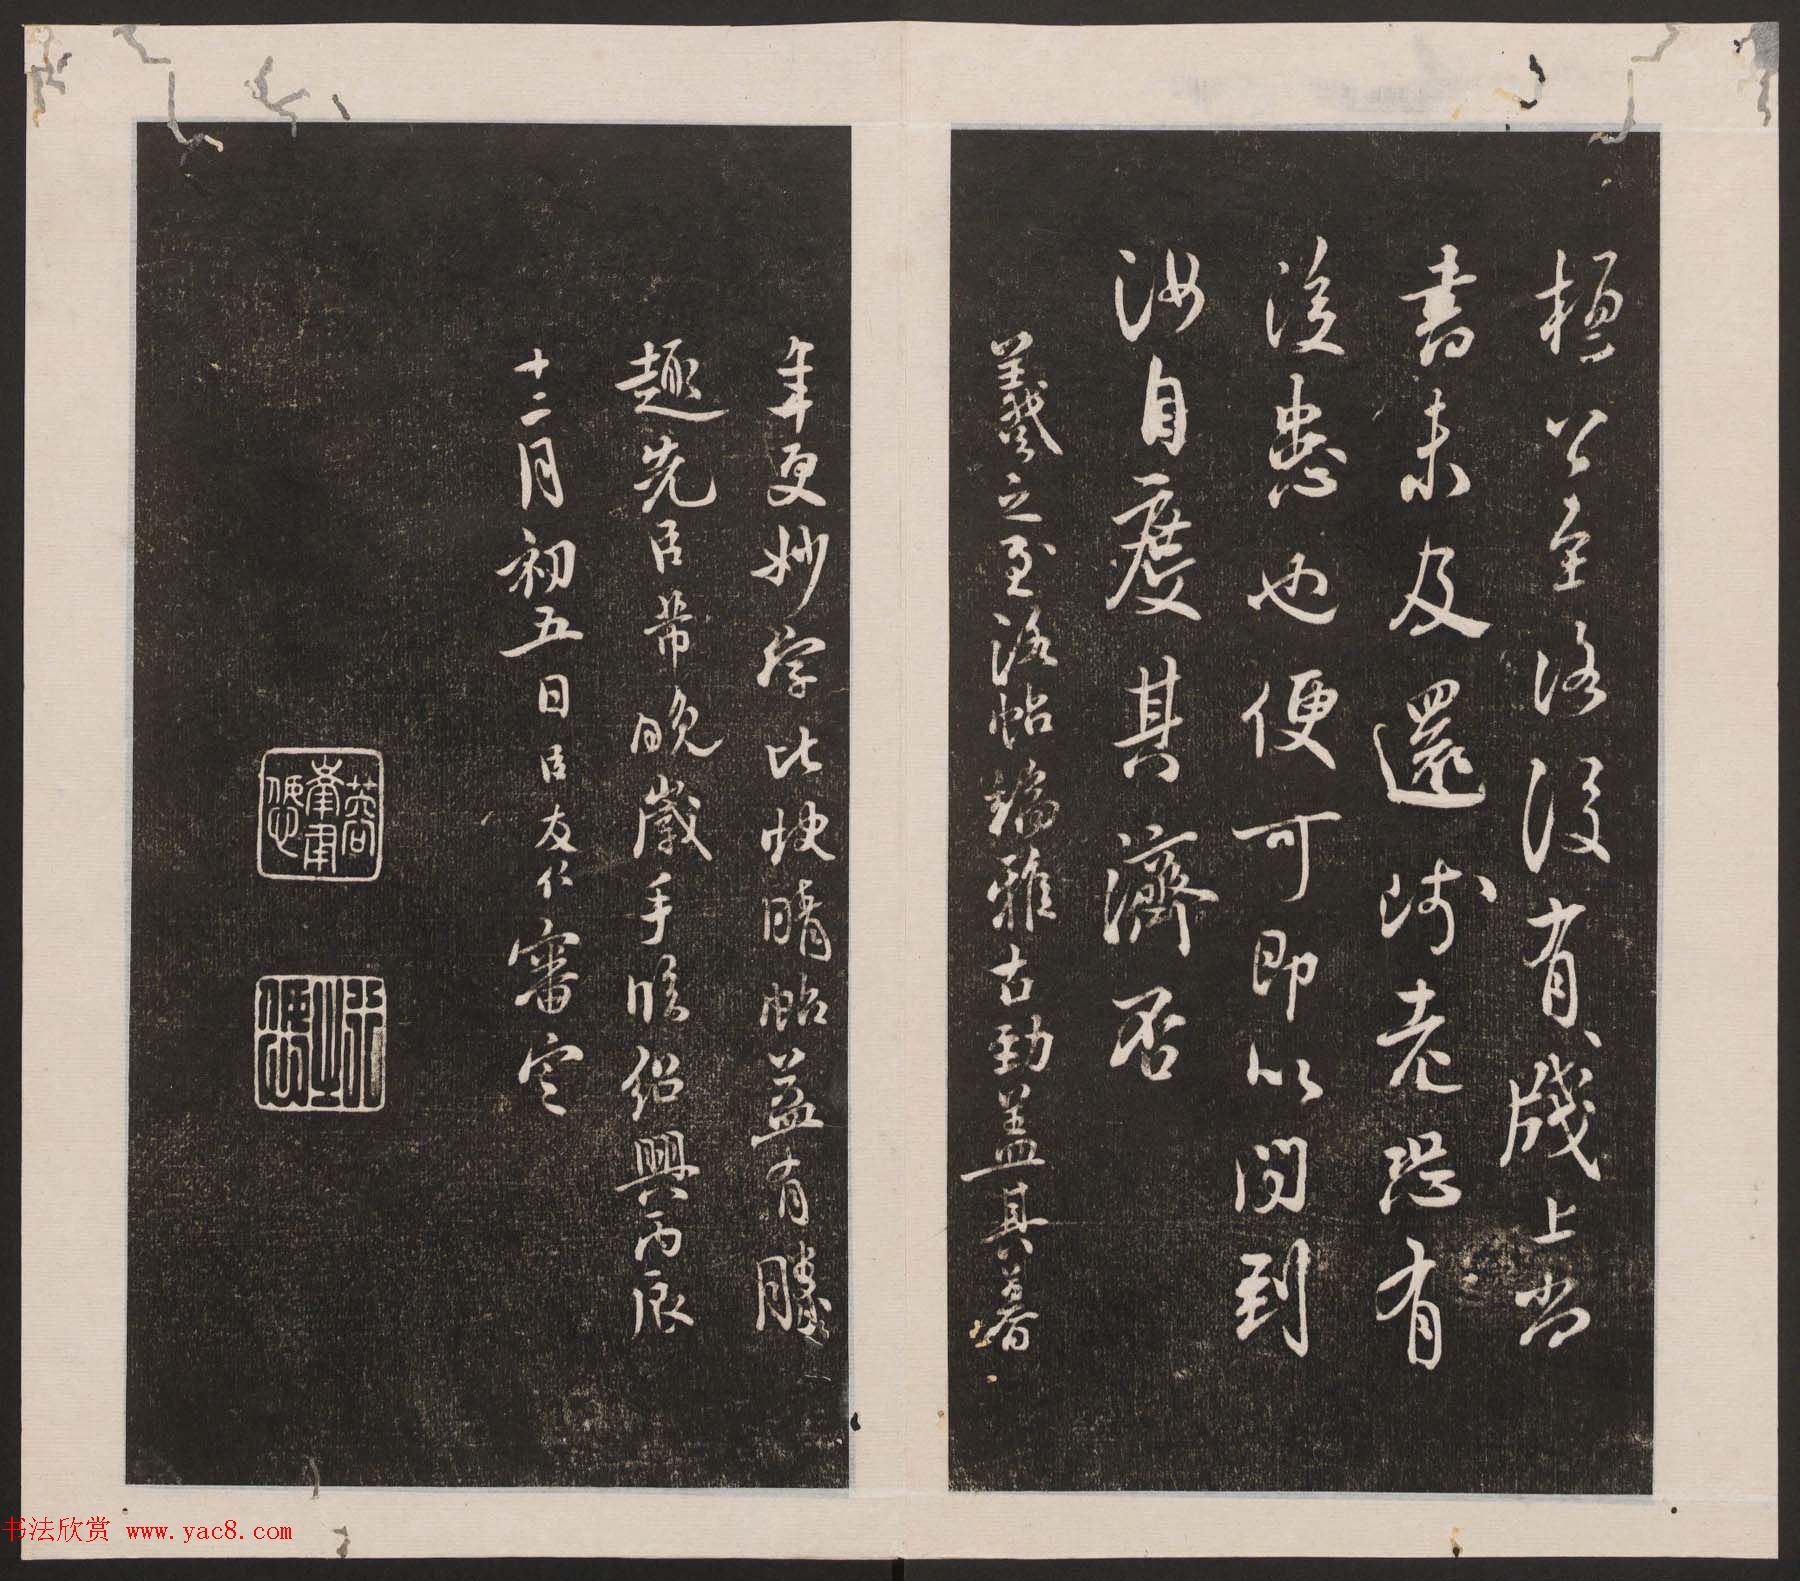 桓公至洛後有牋上尚
書未及還陟老恐有
後患也便可即以問到
汝自度其濟否
羲之至洛帖端雅古勁蓋其暮
年更妙字比快晴帖益有勝
趣先臣芾晚歲手臨紹興丙辰
十二月初五日臣友仁審定
书法欣赏 www.yac8.com